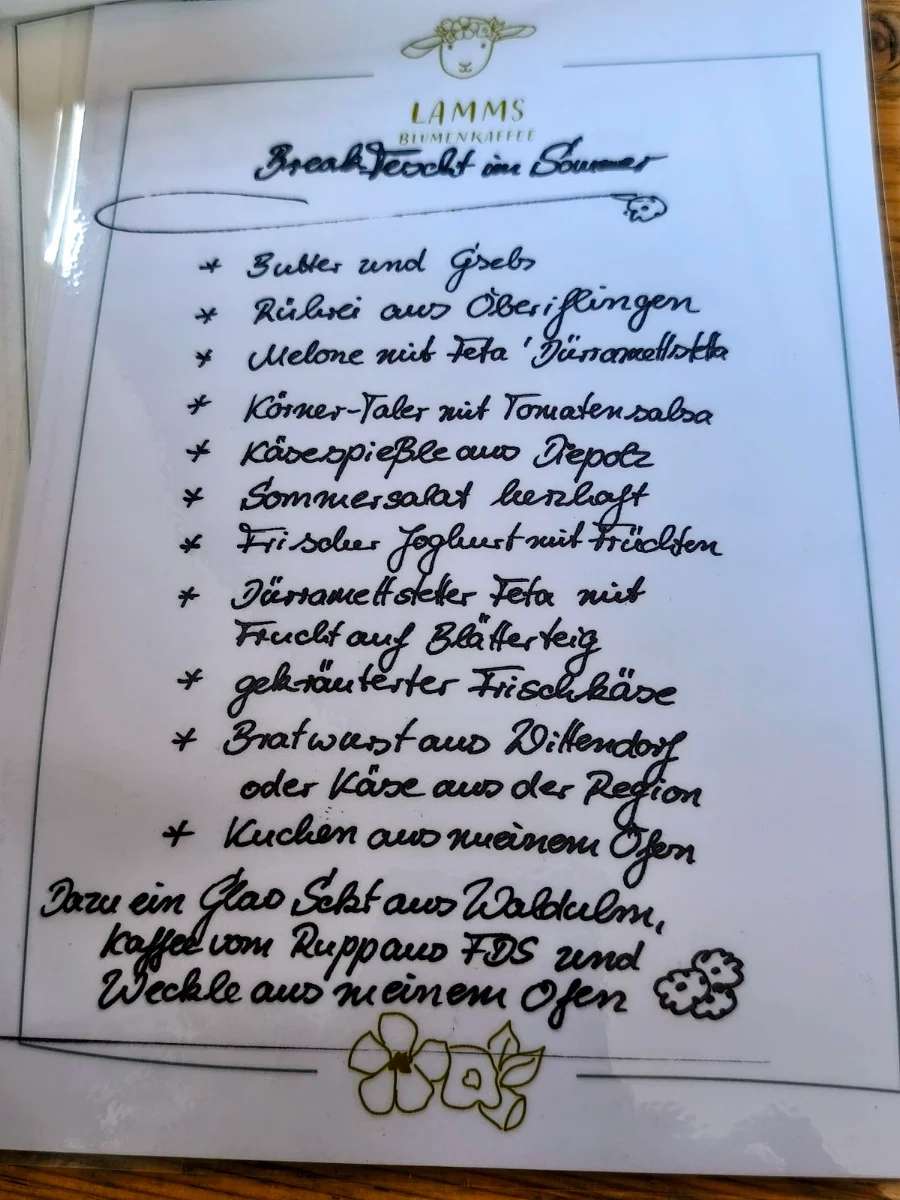 LAMMS
BLUMENKAFFEE
Break-Fescht im Sommer
* Butter und Gsebs
* Rührei aus Oberiflingen
* Melone mit Feta 'Dürramettstetta
* Körner-Taler mit Tomatensalsa
* Käsespießle aus Diepolz
* Sommersalat herzhaft
* Frischer Joghurt mit Früchten
* Dürramettstetter Feta mit
Frucht auf Blätterteig
* gekräuterter Frischkäse
* Bratwurst aus Wittendorf
oder Käse aus der Region
* Kuchen aus meinem Ofen
Dazu ein Glas Sekt aus Waldulm,
Kaffee vom Rupp aus FDS und
Weckle aus meinem Ofen